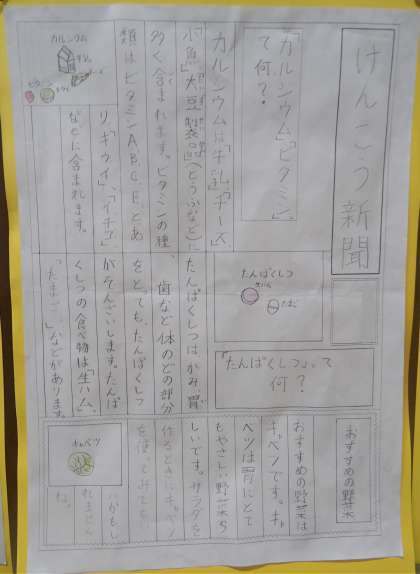 けんこう新聞
「カルシウム」「ビタミン」
て何？
カルシウムは「牛乳」「チーズ」
小魚」大豆製品」(とうふなど)に
多く含まれます。ビタミンの種
類はビタミンA,B,C,E,とあ
り「キウイ」、「イチゴ」
などに含まれます。
カルシウム
ビタミン
たんぱくしつ
たまご
「たんぱくしつ」って
何？
たんぱくしつはかみ、胃
歯など体のどの部分
をとても、たんぱくしつ
がそんざいします。たんぱ
くしつの食べ物は「生ハム」、
「たまご」、などがあります。
おすすめの野菜
おすすめの野菜は
キャベツです。キャ
ベツは胃にとて
もやさしい野菜ら
しいです。サラダを
作るときにキャベツ
を使ってみても
いいかもし
れません
ね。
キャベツ